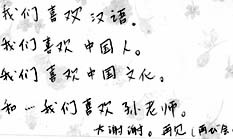 我们喜欢汉语。
我们喜欢中国人。
我们喜欢中国文化。
和…我们喜欢孙老师。
大谢谢。再见（再公